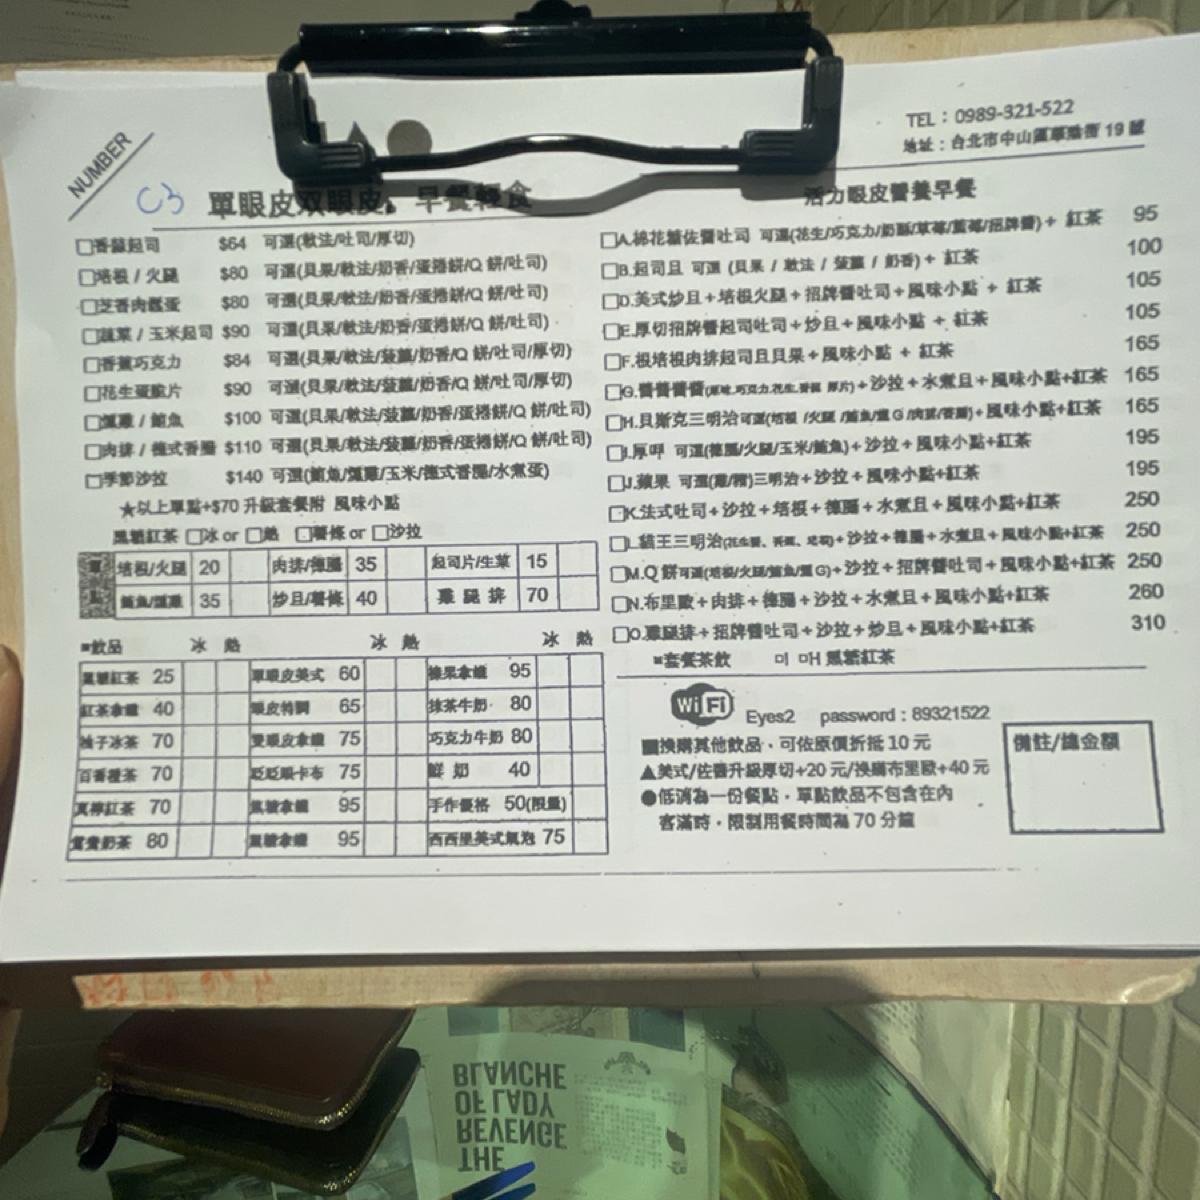 NUMBER
C3
TEL：0989-321-522
地址：台北市中山區 19 號
單眼皮双眼皮、早餐輕食
起司 $64 可選(軟法/吐司/厚切)
□培根 / 火腿 $80 可選(貝果/軟法/奶香/蛋捲餅/Q 餅/吐司)
□芝香肉鬆蛋 $80 可選(貝果/軟法/奶香/蛋捲餅/Q 餅/吐司)
□蔬菜 / 玉米起司 $90 可選(貝果/軟法/奶香/蛋捲餅/Q 餅/吐司)
□香蕉巧克力 $84 可選(貝果/軟法/菠蘿/奶香/Q 餅/吐司/厚切)
□花生蛋脆片 $90 可選(貝果/軟法/菠蘿/奶香/Q 餅/吐司/厚切)
□燻雞 / 鮪魚 $100 可選(貝果/軟法/菠蘿/奶香/蛋捲餅/Q 餅/吐司)
□肉排 / 德式香腸 $110 可選(貝果/軟法/菠蘿/奶香/蛋捲餅/Q 餅/吐司)
□季節沙拉 $140 可選(鮪魚/燻雞/玉米/德式香腸/水煮蛋)
★以上單點+$70 升級套餐附 風味小點
黑糖紅茶 □冰 or □熱 □薯條 or □沙拉
單點
培根/火腿 20 肉排/德腸 35 起司片/生菜 15
鮪魚/燻雞 35 炒旦/薯條 40 雞 腿 排 70
■飲品 冰 熱 冰 熱 冰 熱
黑糖紅茶 25 單眼皮美式 60 榛果拿鐵 95
紅茶拿鐵 40 眼皮特調 65 抹茶牛奶 80
柚子冰茶 70 雙眼皮拿鐵 75 巧克力牛奶 80
百香橙茶 70 眨眨眼卡布 75 鮮 奶 40
紅茶 70 焦糖拿鐵 95 手作優格 50(限量)
鴛鴦奶茶 80 黑糖拿鐵 95 西西里美式氣泡 75
活力眼皮營養早餐
□A.棉花糖佐醬吐司 可選(花生/巧克力/奶酥/草莓/藍莓/招牌醬)+ 紅茶 95
□B.起司旦 可選 (貝果 / 軟法 / 菠蘿 / 奶香)+ 紅茶 100
□D.美式炒旦+培根火腿+招牌醬吐司+風味小點 + 紅茶 105
□E.厚切招牌醬起司吐司+炒旦+風味小點 + 紅茶 105
□F.根培根肉排起司旦貝果+風味小點 + 紅茶 165
□G.醬醬醬醬 +沙拉+水煮旦+風味小點+紅茶 165
□H.貝斯克三明治 +風味小點+紅茶 165
□I.厚呷 可選(德腸/火腿/玉米/鮪魚)+沙拉+風味小點+紅茶 195
□J.蘋果 三明治+沙拉+風味小點+紅茶 195
□K.法式吐司+沙拉+培根+德腸+水煮旦+風味小點+紅茶 250
□L.貓王三明治 +沙拉+德腸+水煮旦+風味小點+紅茶 250
□M.Q 餅 +沙拉+招牌醬吐司+風味小點+紅茶 250
□N.布里歐+肉排+德腸+沙拉+水煮旦+風味小點+紅茶 260
□O.雞腿排+招牌醬吐司+沙拉+炒旦+風味小點+紅茶 310
■套餐茶飲 □I □H 黑糖紅茶
WiFi Eyes2 password：89321522
■換購其他飲品，可依原價折抵 10 元
▲美式/佐醬升級厚切+20 元/換購布里歐+40 元
●低消為一份餐點，單點飲品不包含在內
客滿時，限制用餐時間為 70 分鐘
備註/總金額
THE
REVENGE
OF LADY
BLANCHE